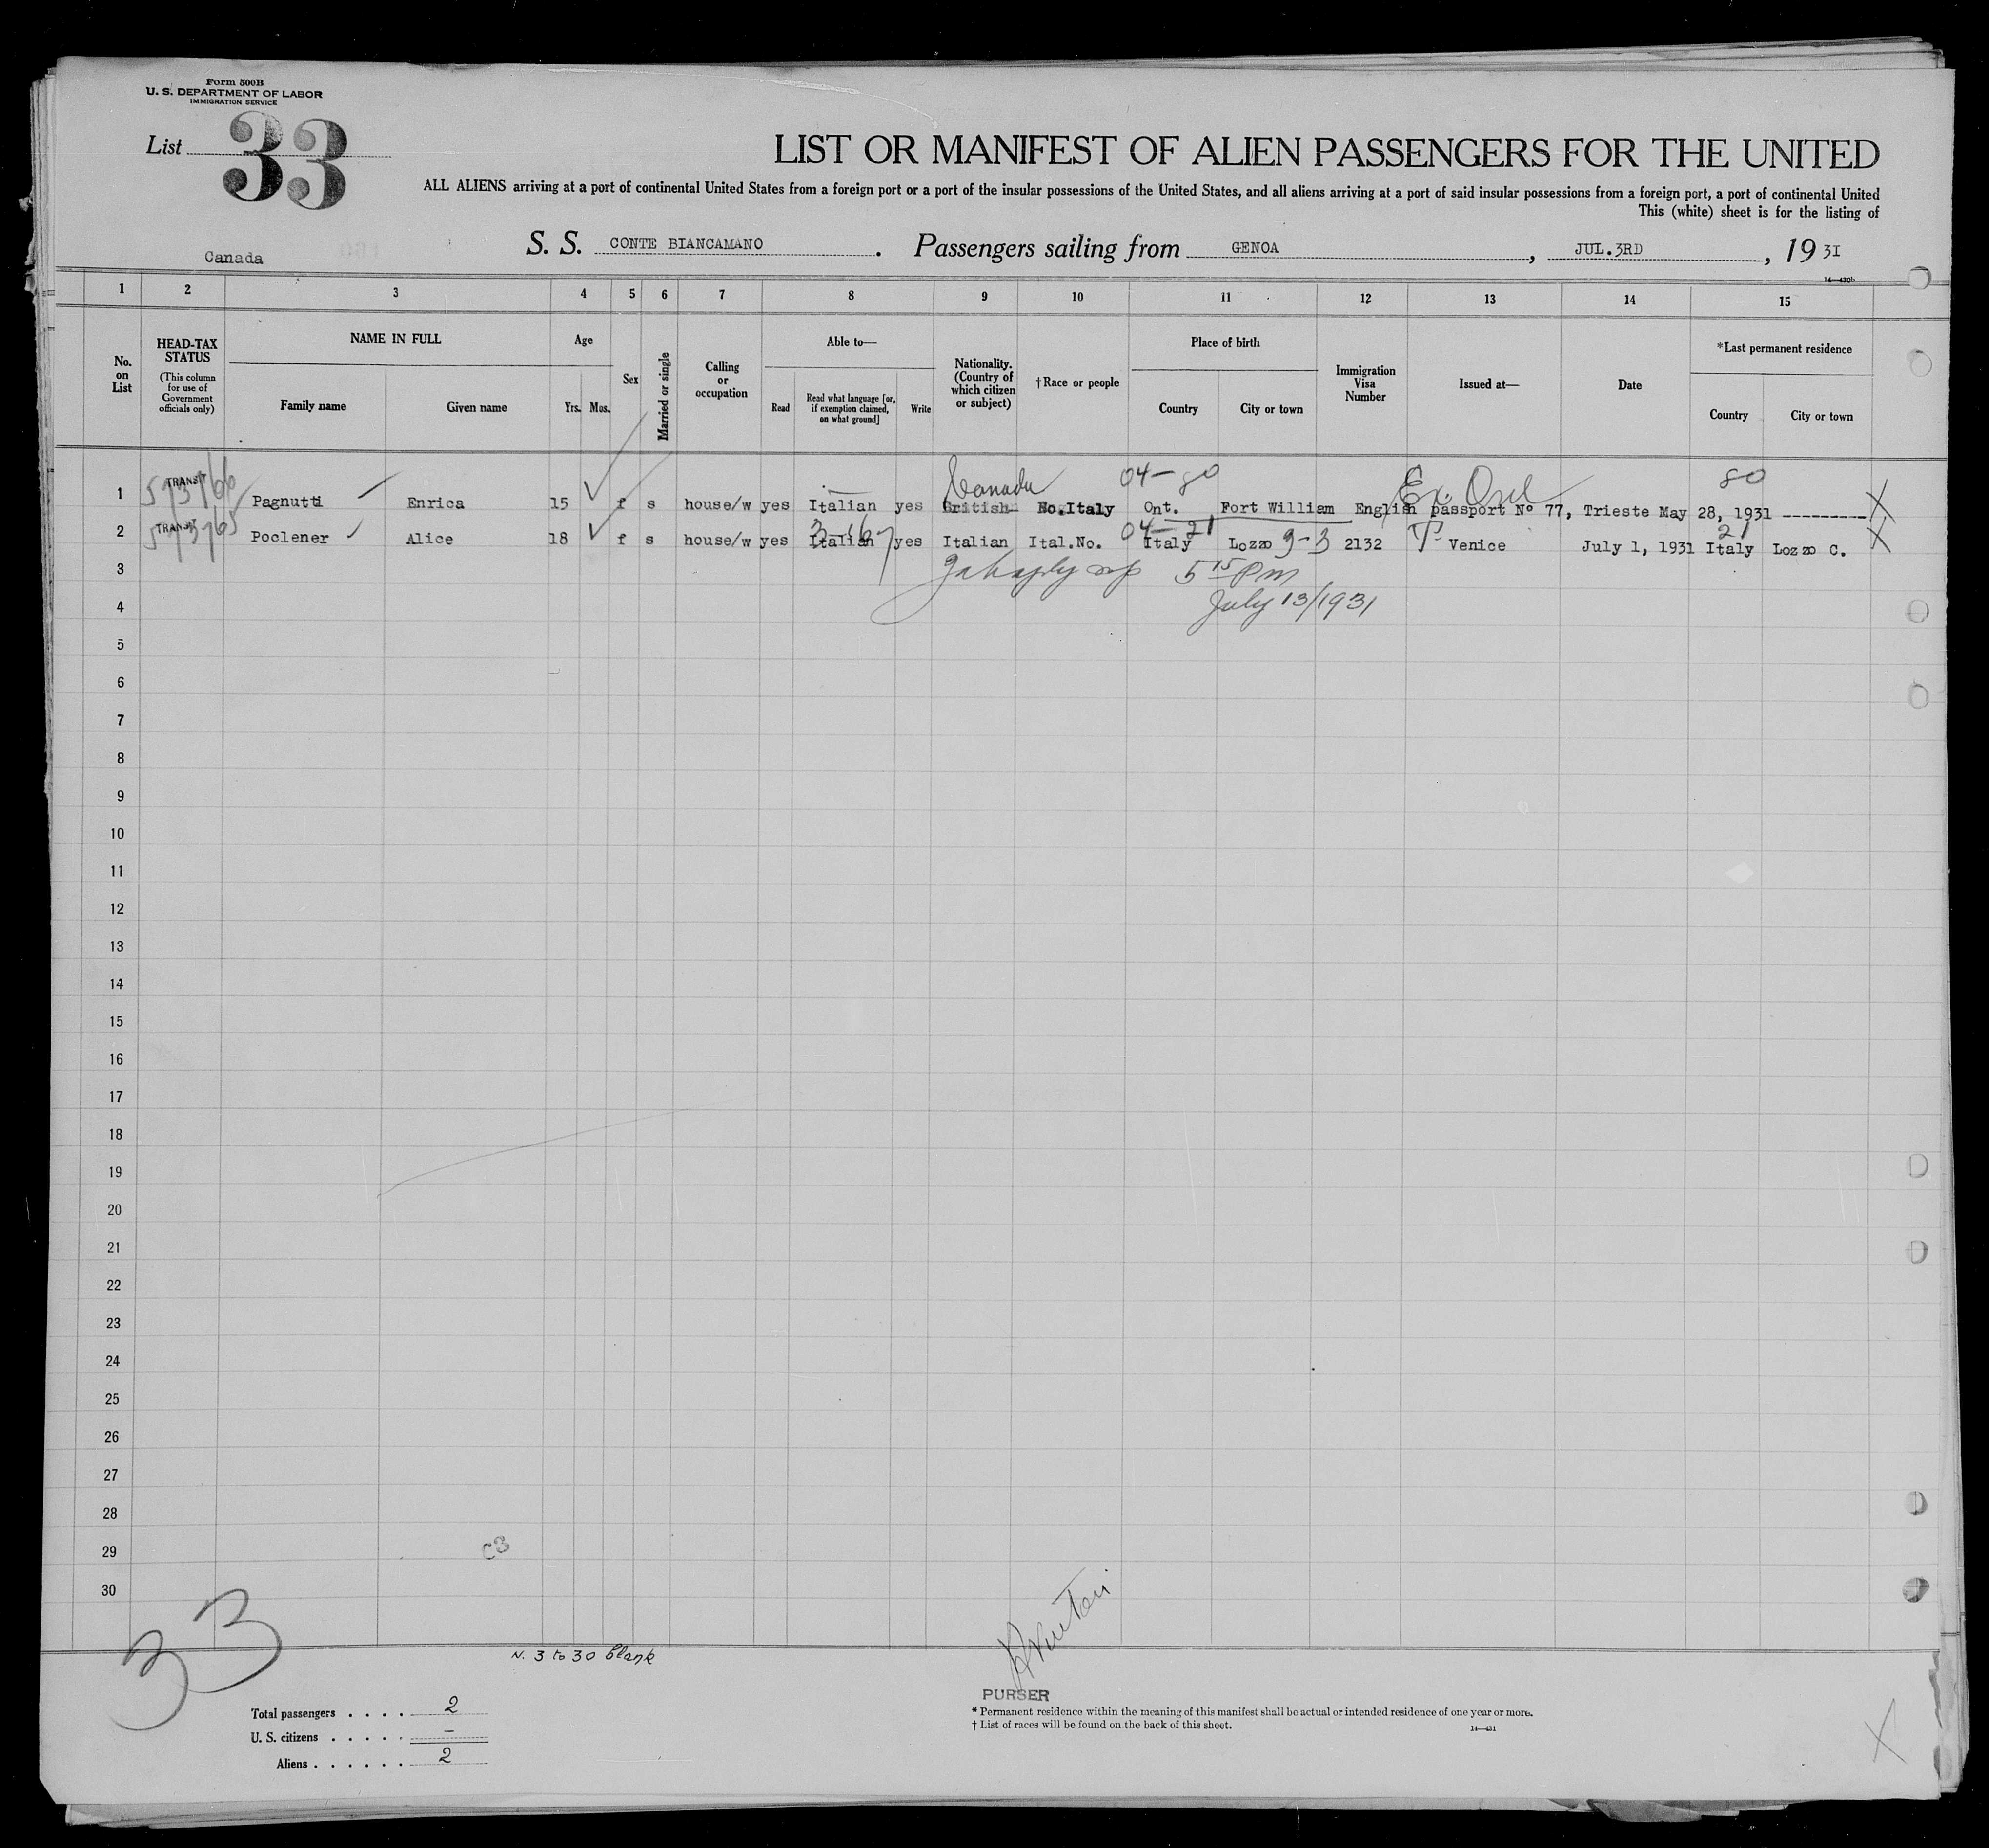 Form 500B
U. S. DEPARTMENT OF LABOR
IMMIGRATION SERVICE
List 33
LIST OR MANIFEST OF ALIEN PASSENGERS FOR THE UNITED
ALL ALIENS arriving at a port of continental United States from a foreign port or a port of the insular possessions of the United States, and all aliens arriving at a port of said insular possessions from a foreign port, a port of continental United
This (white) sheet is for the listing of
Canada
S. S. CONTE BIANCAMANO. Passengers sailing from GENOA, JUL.3RD, 1931
14—430b
1 2 3 4 5 6 7 8 9 10 11 12 13 14 15
No. on List
HEAD-TAX STATUS
(This column for use of Government officials only)
NAME IN FULL
Family name Given name
Age
Yrs. Mos.
Sex
Married or single
Calling or occupation
Able to—
Read
Read what language [or, if exemption claimed, on what ground]
Write
Nationality. (Country of which citizen or subject)
†Race or people
Place of birth
Country City or town
Immigration Visa Number
Issued at—
Date
*Last permanent residence
Country City or town
Canada 04-80 80
1 TRANSIT Pagnutti Enrica 15 f s house/w yes Italian yes British No.Italy Ont. Fort William English passport Nº 77, Trieste May 28, 1931 ---------- X
3-167 04-21 21
2 TRANSIT Poclener Alice 18 f s house/w yes Italian yes Italian Ital.No. Italy Lozzo 9-3 2132 Venice July 1, 1931 Italy Lozzo C. X
3 5 15 Pm
4 July 13/1931
5
6
7
8
9
10
11
12
13
14
15
16
17
18
19
20
21
22
23
24
25
26
27
28
29 C3
30
33
N. 3 to 30 blank
PURSER
Total passengers . . . . 2
U. S. citizens . . . . . –
Aliens . . . . . . 2
* Permanent residence within the meaning of this manifest shall be actual or intended residence of one year or more.
† List of races will be found on the back of this sheet.
14—431
X